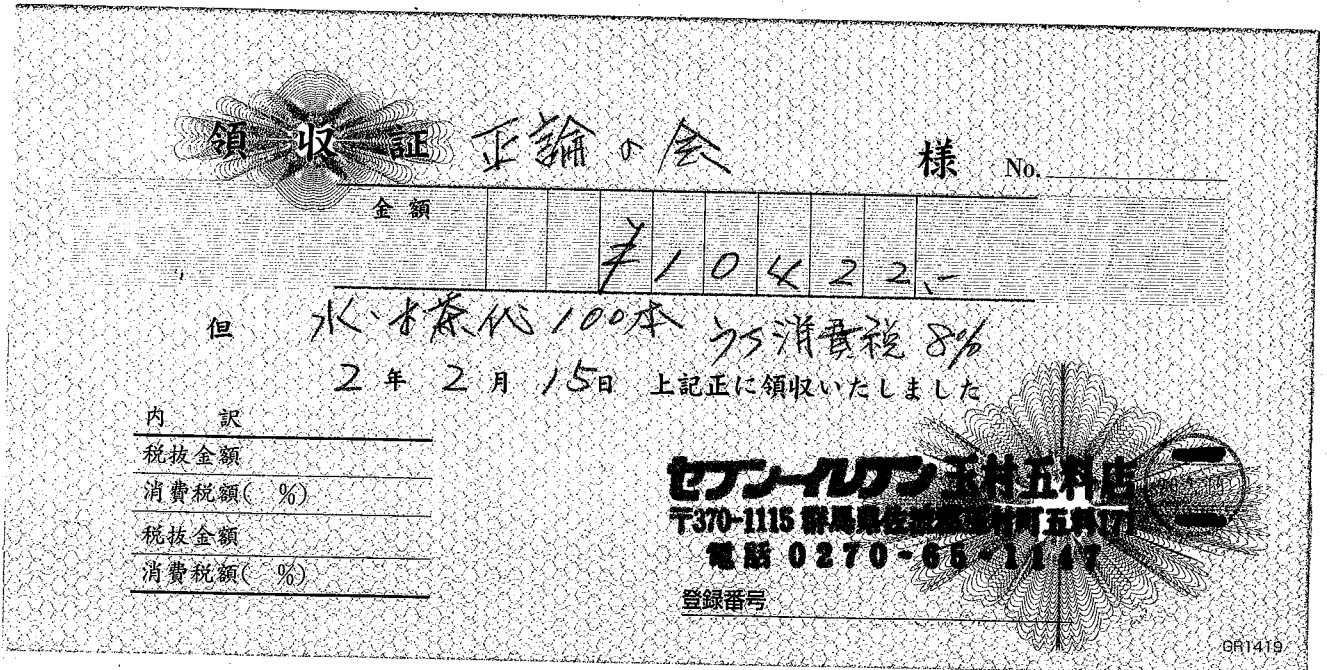 領収証 正論の会 様 No.
金額 ¥10422.-
但 水・お茶代 100本 うち消費税 8%
2年2月15日 上記正に領収いたしました
内訳
税抜金額
消費税額( %)
税抜金額
消費税額( %)
セブン-イレブン 玉村五料店
〒370-1115 群馬県佐波郡玉村町五料171
電話 0270-65-1147
登録番号
GR1419